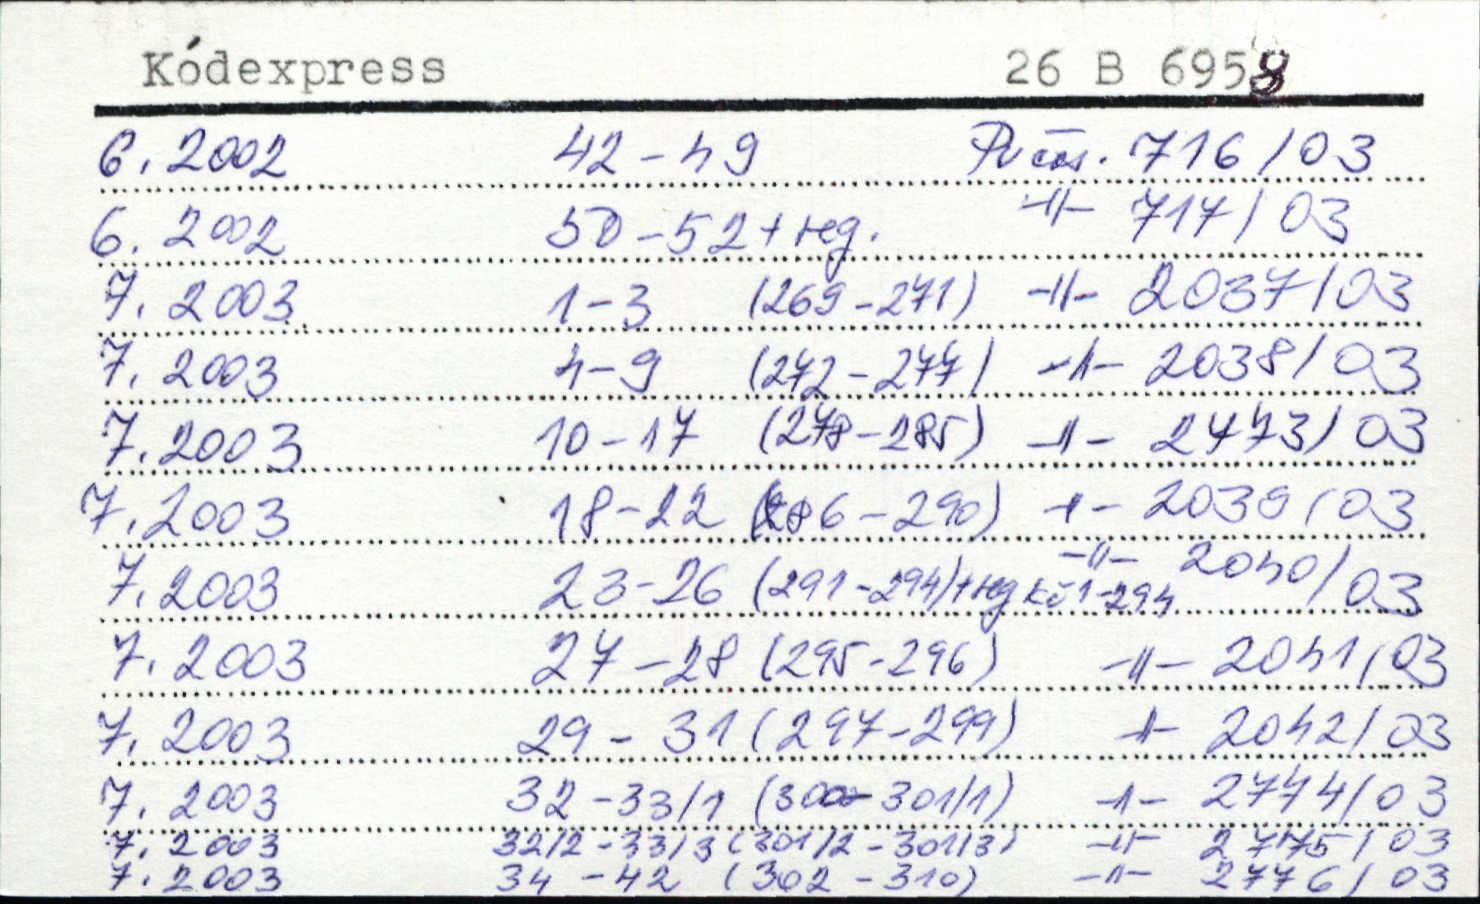 Kódexpress 26 B 6958
6. 2002 42-49 716/03
6. 2002 50-52 + reg. -॥- 717/03
7. 2003 1-3 (269-271) -॥- 2037/03
7. 2003 4-9 (272-277) -॥- 2038/03
7. 2003 10-17 (278-285) -॥- 2773/03
7. 2003 18-22 (286-290) -॥- 2039/03
7. 2003 23-26 (291-294) + reg kö 1-294 -॥- 2040/03
7. 2003 27-28 (295-296) -॥- 2041/03
7. 2003 29-31 (297-299) -॥- 2042/03
7. 2003 32-33/1 (300-301/1) -॥- 2774/03
7. 2003 32/2-33/3 (301/2-301/3) -॥- 2775/03
7. 2003 34-42 (302-310) -॥- 2776/03